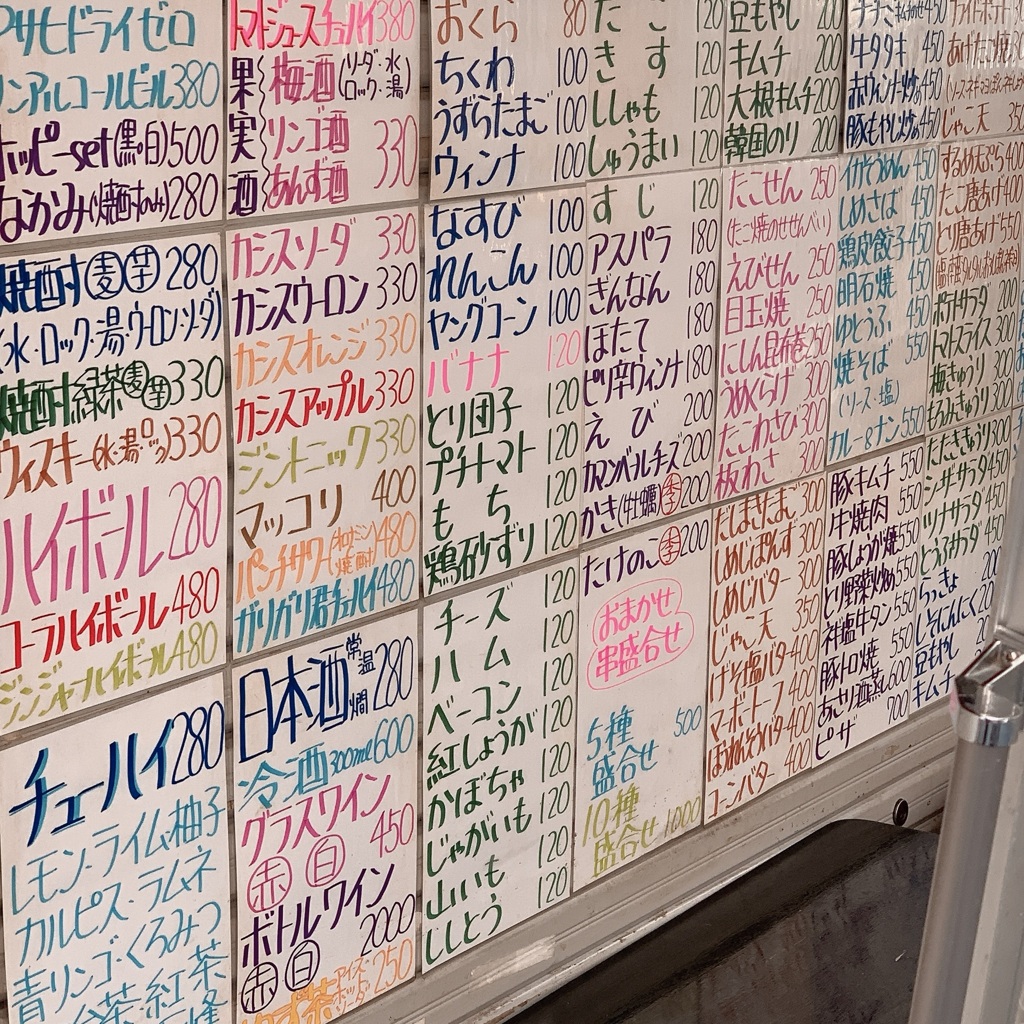 アサヒドライゼロ
ノンアルコールビール380
ホッピーset(黒・白)500
なかみ(焼酎のみ)280
焼酎 麦 芋 280
(水・ロック・湯・ウーロン・ソーダ)
焼酎緑茶 麦 芋 330
ウィスキー(水・湯・ロック)330
ハイボール 280
コーラハイボール480
ジンジャーハイボール480
チューハイ280
レモン・ライム・柚子
カルピス・ラムネ
青リンゴ・くろみつ
茶・紅茶
トマトジュースチュハイ380
果実酒
梅酒(ソーダ・水・ロック・湯)
リンゴ酒 330
あんず酒
カシスソーダ 330
カシスウーロン 330
カシスオレンジ 330
カシスアップル 330
ジントニック 330
マッコリ 400
パンチサワー 480
ガリガリ君チュハイ480
日本酒 常温 燗 280
冷酒300ml600
グラスワイン
赤 白 450
ボトルワイン
赤 白 2000
ゆず茶 アイス・ホット・ソーダ 250
おくら 80
ちくわ 100
うずらたまご 100
ウィンナ 100
なすび 100
れんこん 100
ヤングコーン 100
バナナ 120
とり団子 120
プチトマト 120
もち 120
鶏砂ずり 120
チーズ 120
ハム 120
ベーコン 120
紅しょうが 120
かぼちゃ 120
じゃがいも 120
山いも 120
ししとう 120
たこ 120
きす 120
ししゃも 120
しゅうまい 120
すじ 120
アスパラ 180
ぎんなん 180
ほたて 180
ピリ辛ウィンナ 180
えび 200
カマンベールチーズ 200
かき(牡蠣) 季 200
たけのこ 季 200
おまかせ
串盛合せ
5種 500
盛合せ
10種
盛合せ 1000
豆もやし 200
キムチ 200
大根キムチ 200
韓国のり 200
たこせん 250
(たこ焼のせせんべい)
えびせん 250
目玉焼 250
にしん昆布巻 250
うめくらげ 300
たこわさび 300
板わさ 300
だしまきたまご 300
しめじぽんず 300
しめじバター 300
じゃこ天 350
げそ塩バター 400
マーボートーフ 400
ほうれんそうバター 400
コーンバター 400
牛タタキ 450
赤ウィンナー炒め 450
豚もやし炒め 450
イカそうめん 450
しめさば 450
鶏皮餃子 450
明石焼 450
ゆどうふ 450
焼そば 550
(ソース・塩)
カレー&ナン 550
豚キムチ 550
牛焼肉 550
豚しょうが焼 550
とり野菜炒め 550
ネギ塩牛タン 550
豚トロ焼 550
あさり酒蒸し 600
ピザ 700
フライドポテト
あげたこ焼
じゃこ天 350
するめ天ぷら 400
たこ唐あげ 400
とり唐あげ 550
ポテトサラダ 200
トマトスライス 300
梅きゅうり 300
もろみきゅうり 300
たたききゅうり 300
シーザーサラダ 450
ツナサラダ 450
とうふサラダ 450
らっきょ 200
しそにんにく
豆もやし
キムチ